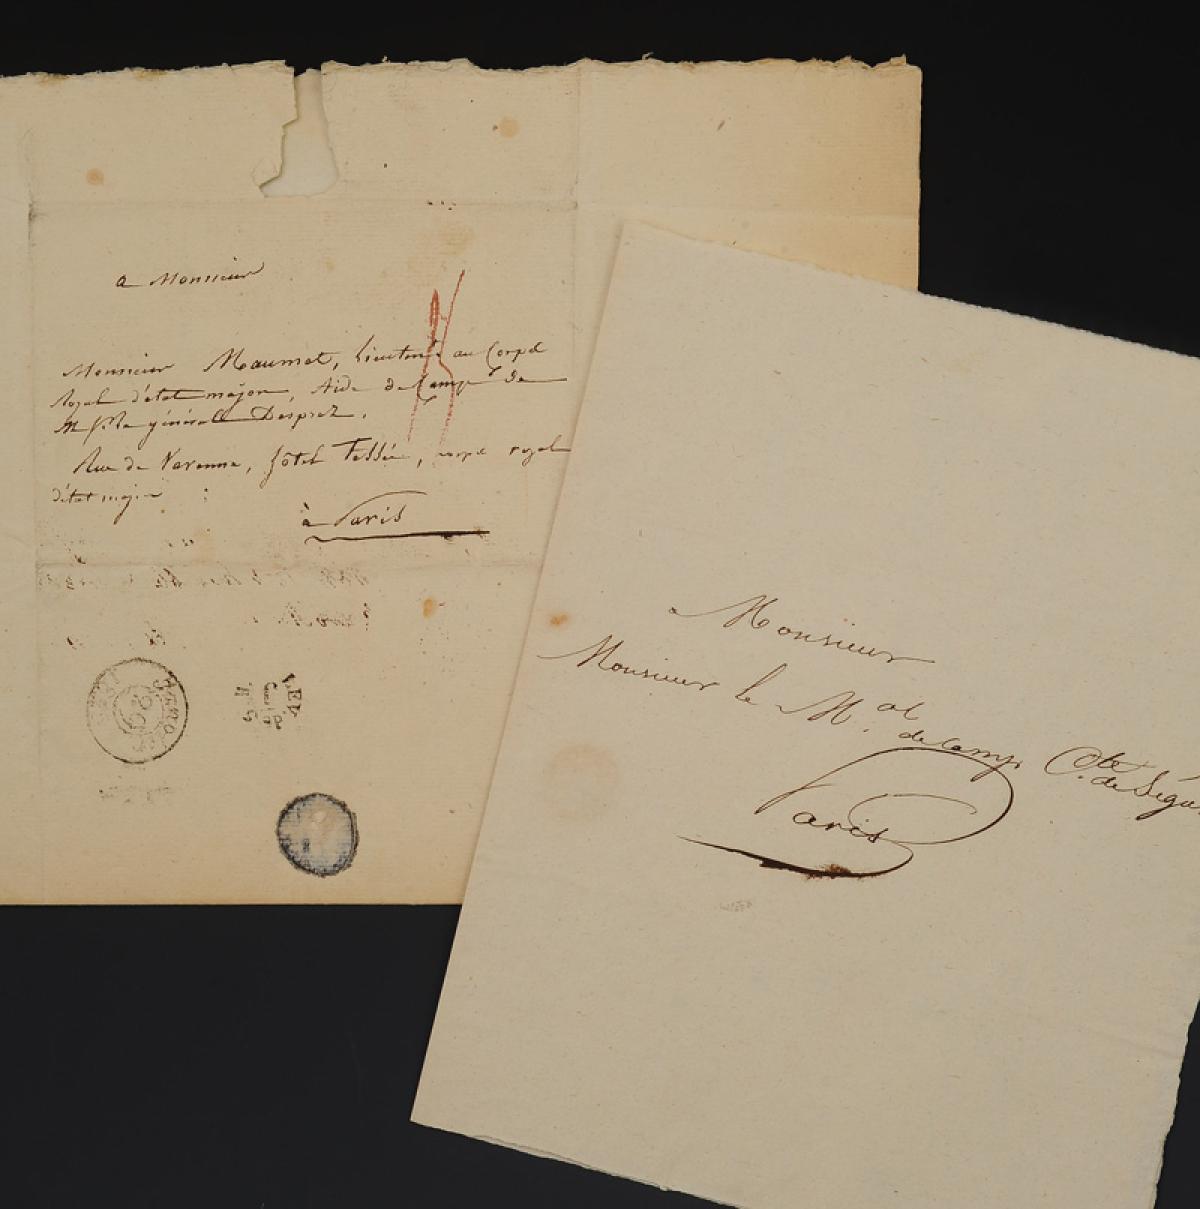 a Monsieur
Monsieur Maumet, Lieutent au Corps
royal d'état major, Aide de Camp de
Mr le général Desprez.
Rue de Varenne, hôtel Tessé, corps royal
d'état major
à Paris
a Monsieur
Monsieur le M.al
de Camp Cte de Ségur
Paris